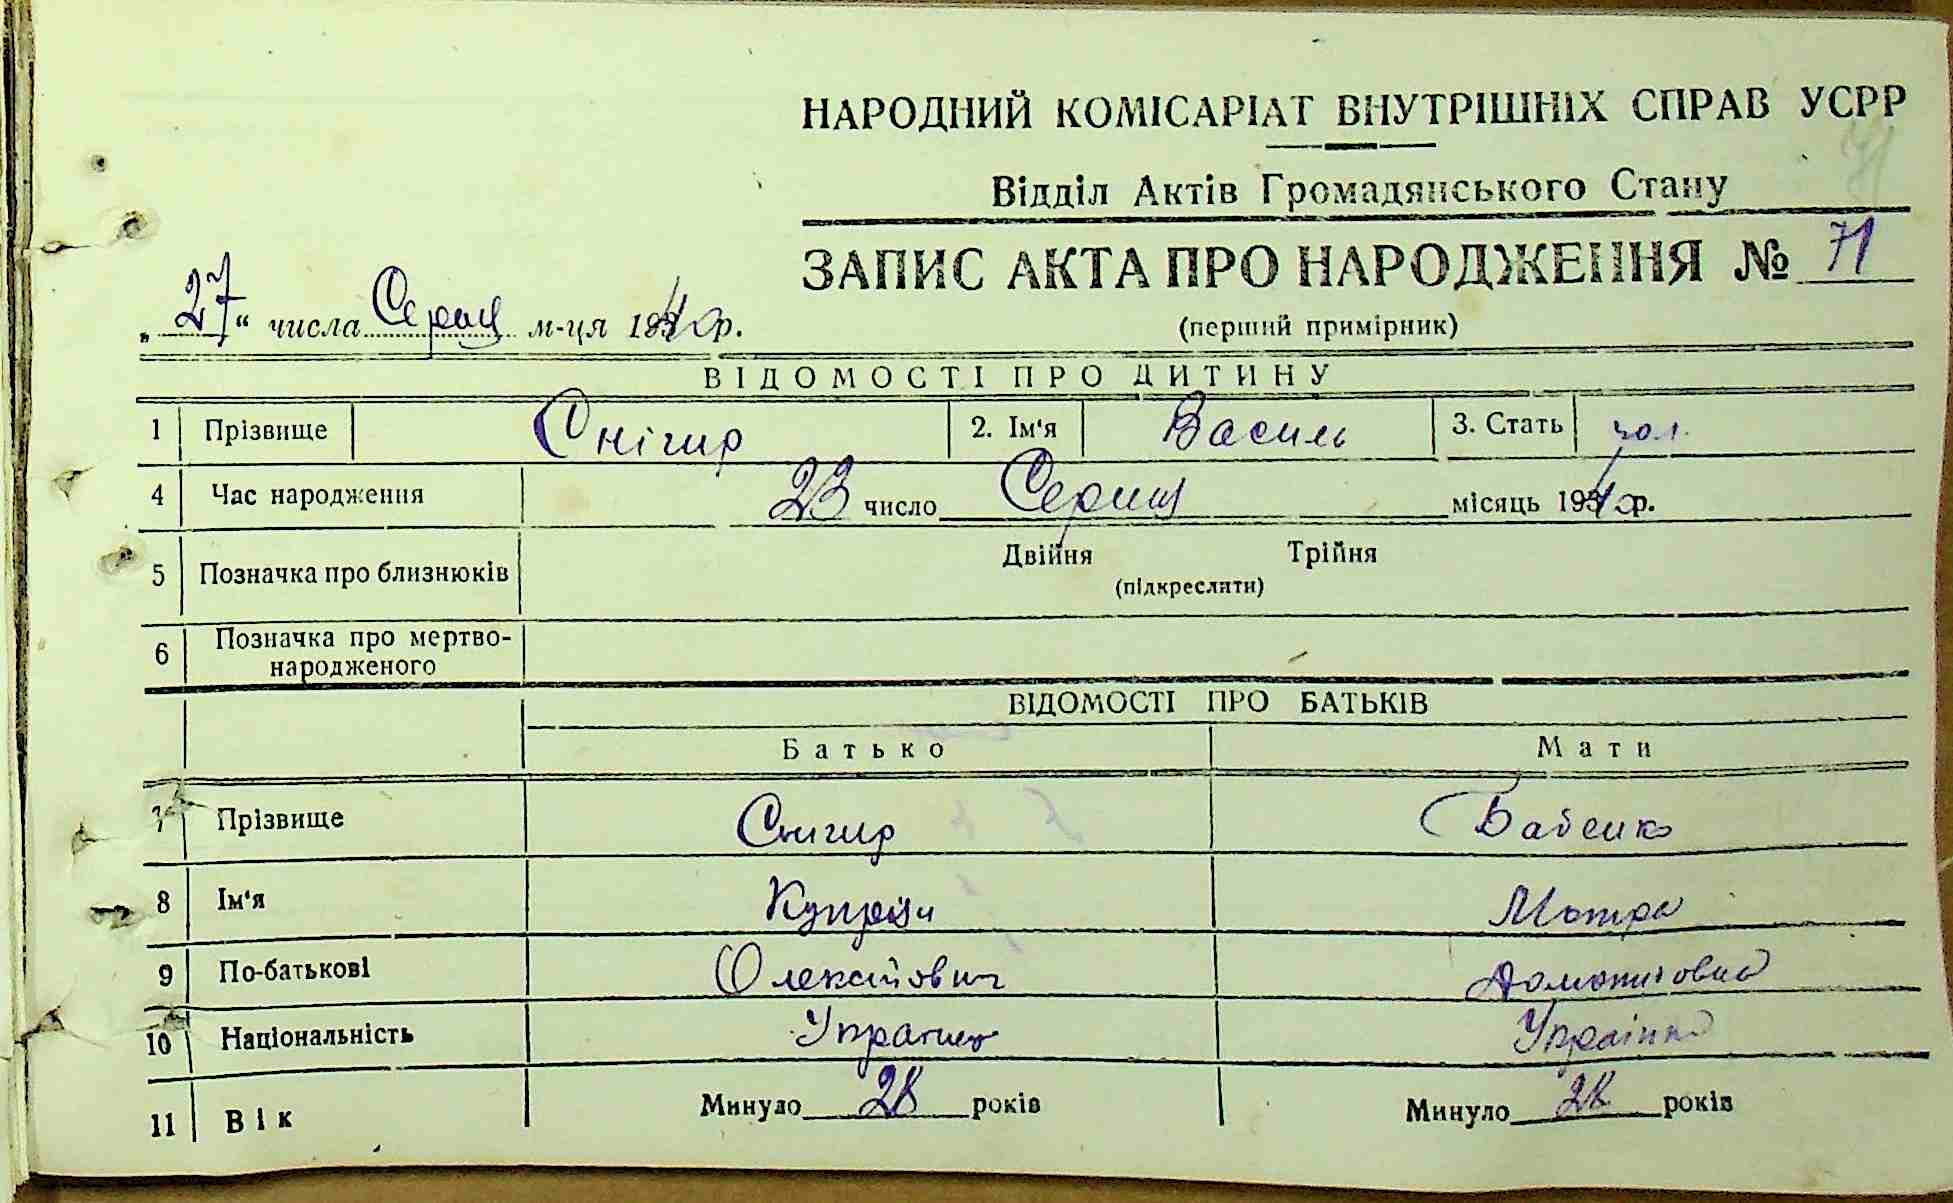 НАРОДНИЙ КОМІСАРІАТ ВНУТРІШНІХ СПРАВ УСРР
Відділ Актів Громадянського Стану
ЗАПИС АКТА ПРО НАРОДЖЕННЯ № 71
„27“ числа Серпня м-ця 1940р.
(перший примірник)
ВІДОМОСТІ ПРО ДИТИНУ
1 Прізвище Снігир 2. Ім'я Василь 3. Стать чол.
4 Час народження 23 число Серпня місяць 1940р.
5 Позначка про близнюків Двійня Трійня
(підкреслити)
6 Позначка про мертво-
народженого
ВІДОМОСТІ ПРО БАТЬКІВ
Батько Мати
7 Прізвище Снігир Бабенко
8 Ім'я Мотря
9 По-батькові Олексійович
10 Національність Українка
11 Вік Минуло 28 років Минуло 28 років